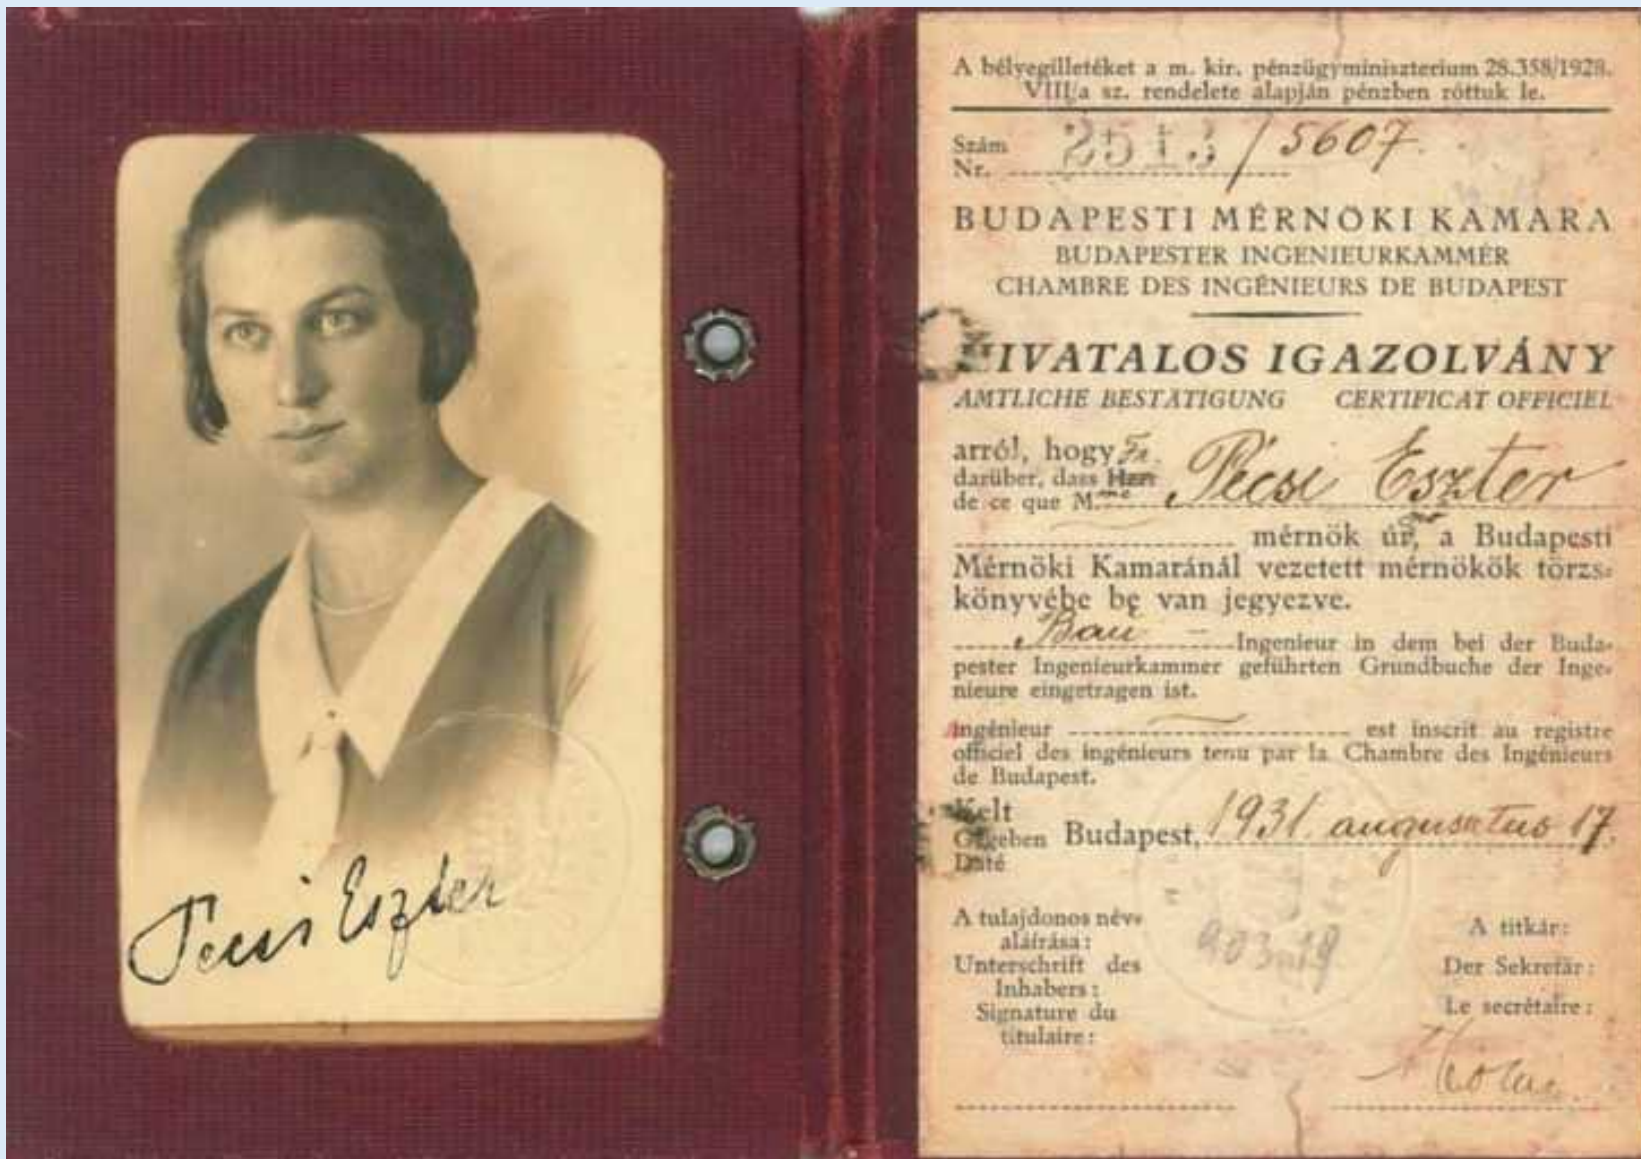 Pécsi Eszter
A bélyegilletéket a m. kir. pénzügyminiszterium 28.358/1928.
VIII/a sz. rendelete alapján pénzben róttuk le.
Szám 2513/5607.
Nr.
BUDAPESTI MÉRNÖKI KAMARA
BUDAPESTER INGENIEURKAMMER
CHAMBRE DES INGÉNIEURS DE BUDAPEST
HIVATALOS IGAZOLVÁNY
AMTLICHE BESTÄTIGUNG CERTIFICAT OFFICIEL
arról, hogy Pécsi Eszter
darüber, dass Fr. Herr
de ce que Mme
mérnök úr, a Budapesti
Mérnöki Kamaránál vezetett mérnökök törzs-
könyvébe be van jegyezve.
Bau - Ingenieur in dem bei der Buda-
pester Ingenieurkammer geführten Grundbuche der Inge-
nieure eingetragen ist.
ingénieur est inscrit au registre
officiel des ingénieurs tenu par la Chambre des Ingénieurs
de Budapest.
Kelt
Gegeben Budapest, 1931. augusztus 17.
Daté
A tulajdonos név-
aláírása:
Unterschrift des
Inhabers:
Signature du
titulaire:
A titkár:
Der Sekretär:
Le secrétaire: